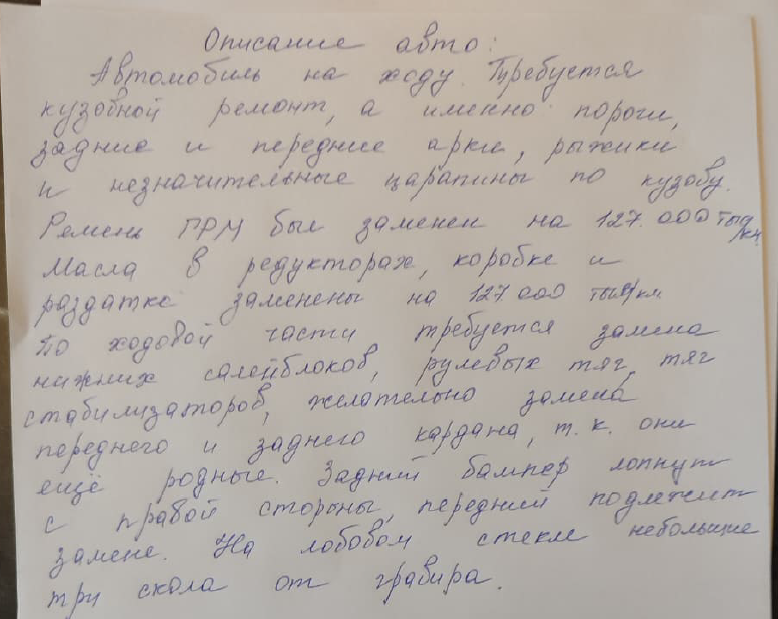 Описание авто:
Автомобиль на ходу. Требуется
кузовной ремонт, а именно пороги,
задние и передние арки, рыжики
и незначительные царапины по кузову.
Ремень ГРМ был заменен на 127.000 тыщ/км.
Масла в редукторах, коробке и
раздатке заменены на 127000 тыщ/км
По ходовой части требуется замена
нижних салейблоков, рулевых тяг, тяг
стабилизаторов, желательно замена
переднего и заднего кардана, т.к. они
ещё родные. Задний бампер лопнут
с правой стороны, передний подлежит
замене. На лобовом стекле небольшие
три скола от гравира.